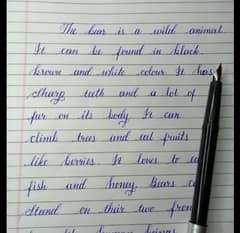 The bear is a wild animal.
It can be found in black
brown and white colour It has
sharp teeth and a lot of
fur on its body. It can
climb trees and eat fruits
like berries. It loves to
fish and honey. Bears
stand on their two
human beings